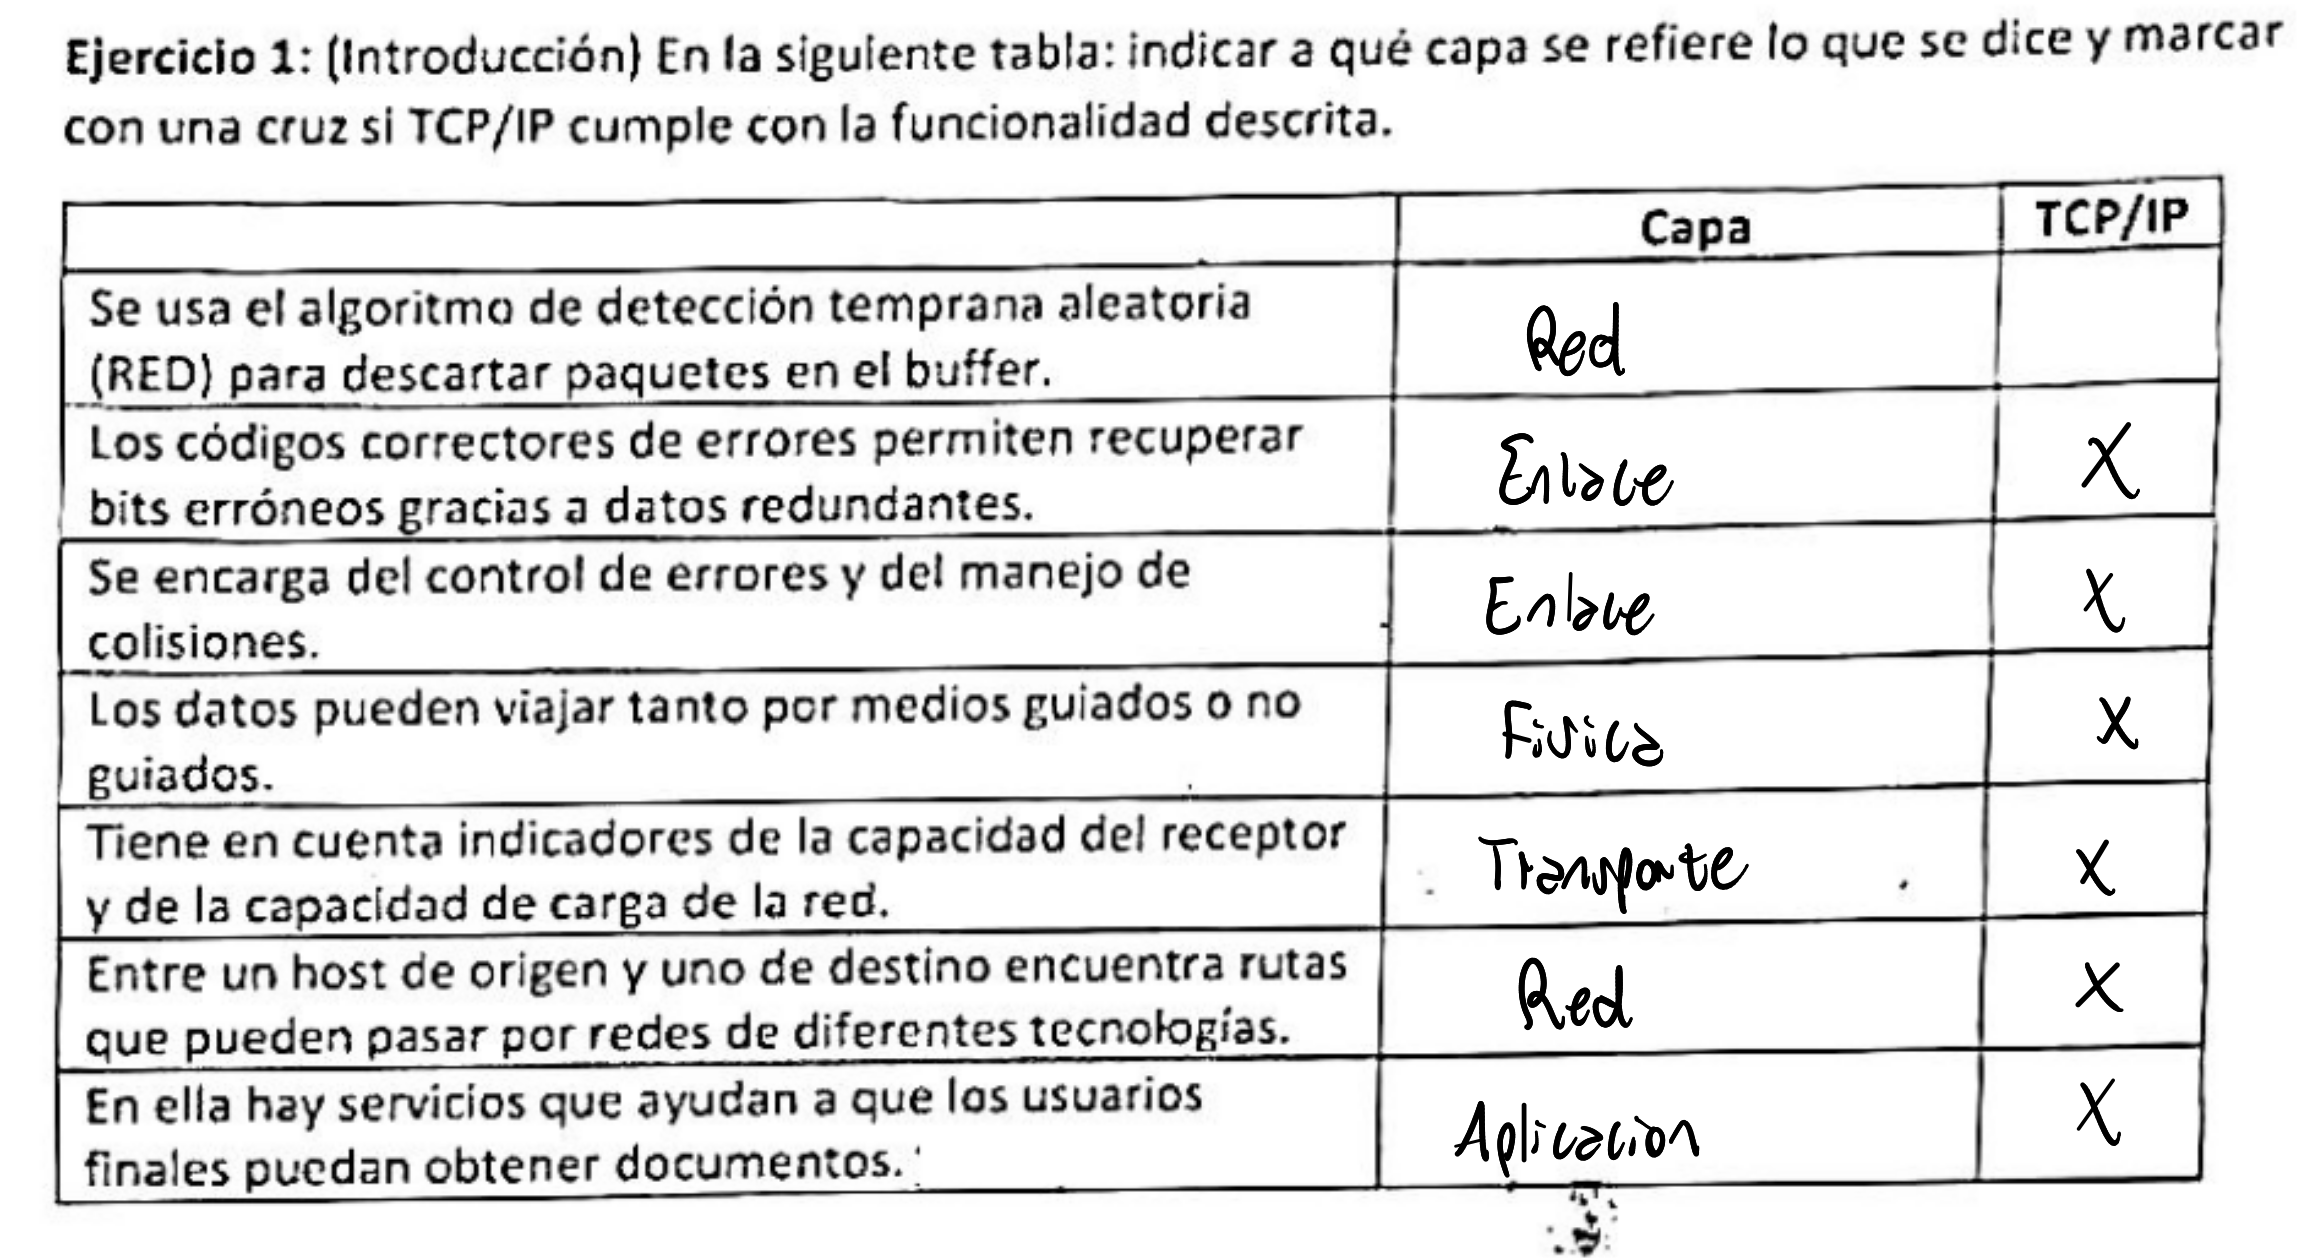 Ejercicio 1: (Introducción) En la siguiente tabla: indicar a qué capa se refiere lo que se dice y marcar
con una cruz si TCP/IP cumple con la funcionalidad descrita.
Capa TCP/IP
Se usa el algoritmo de detección temprana aleatoria
(RED) para descartar paquetes en el buffer.
Red
Los códigos correctores de errores permiten recuperar
bits erróneos gracias a datos redundantes.
Enlace X
Se encarga del control de errores y del manejo de
colisiones.
Enlace X
Los datos pueden viajar tanto por medios guiados o no
guiados.
Física X
Tiene en cuenta indicadores de la capacidad del receptor
y de la capacidad de carga de la red.
Transporte X
Entre un host de origen y uno de destino encuentra rutas
que pueden pasar por redes de diferentes tecnologías.
Red X
En ella hay servicios que ayudan a que los usuarios
finales puedan obtener documentos.
Aplicación X